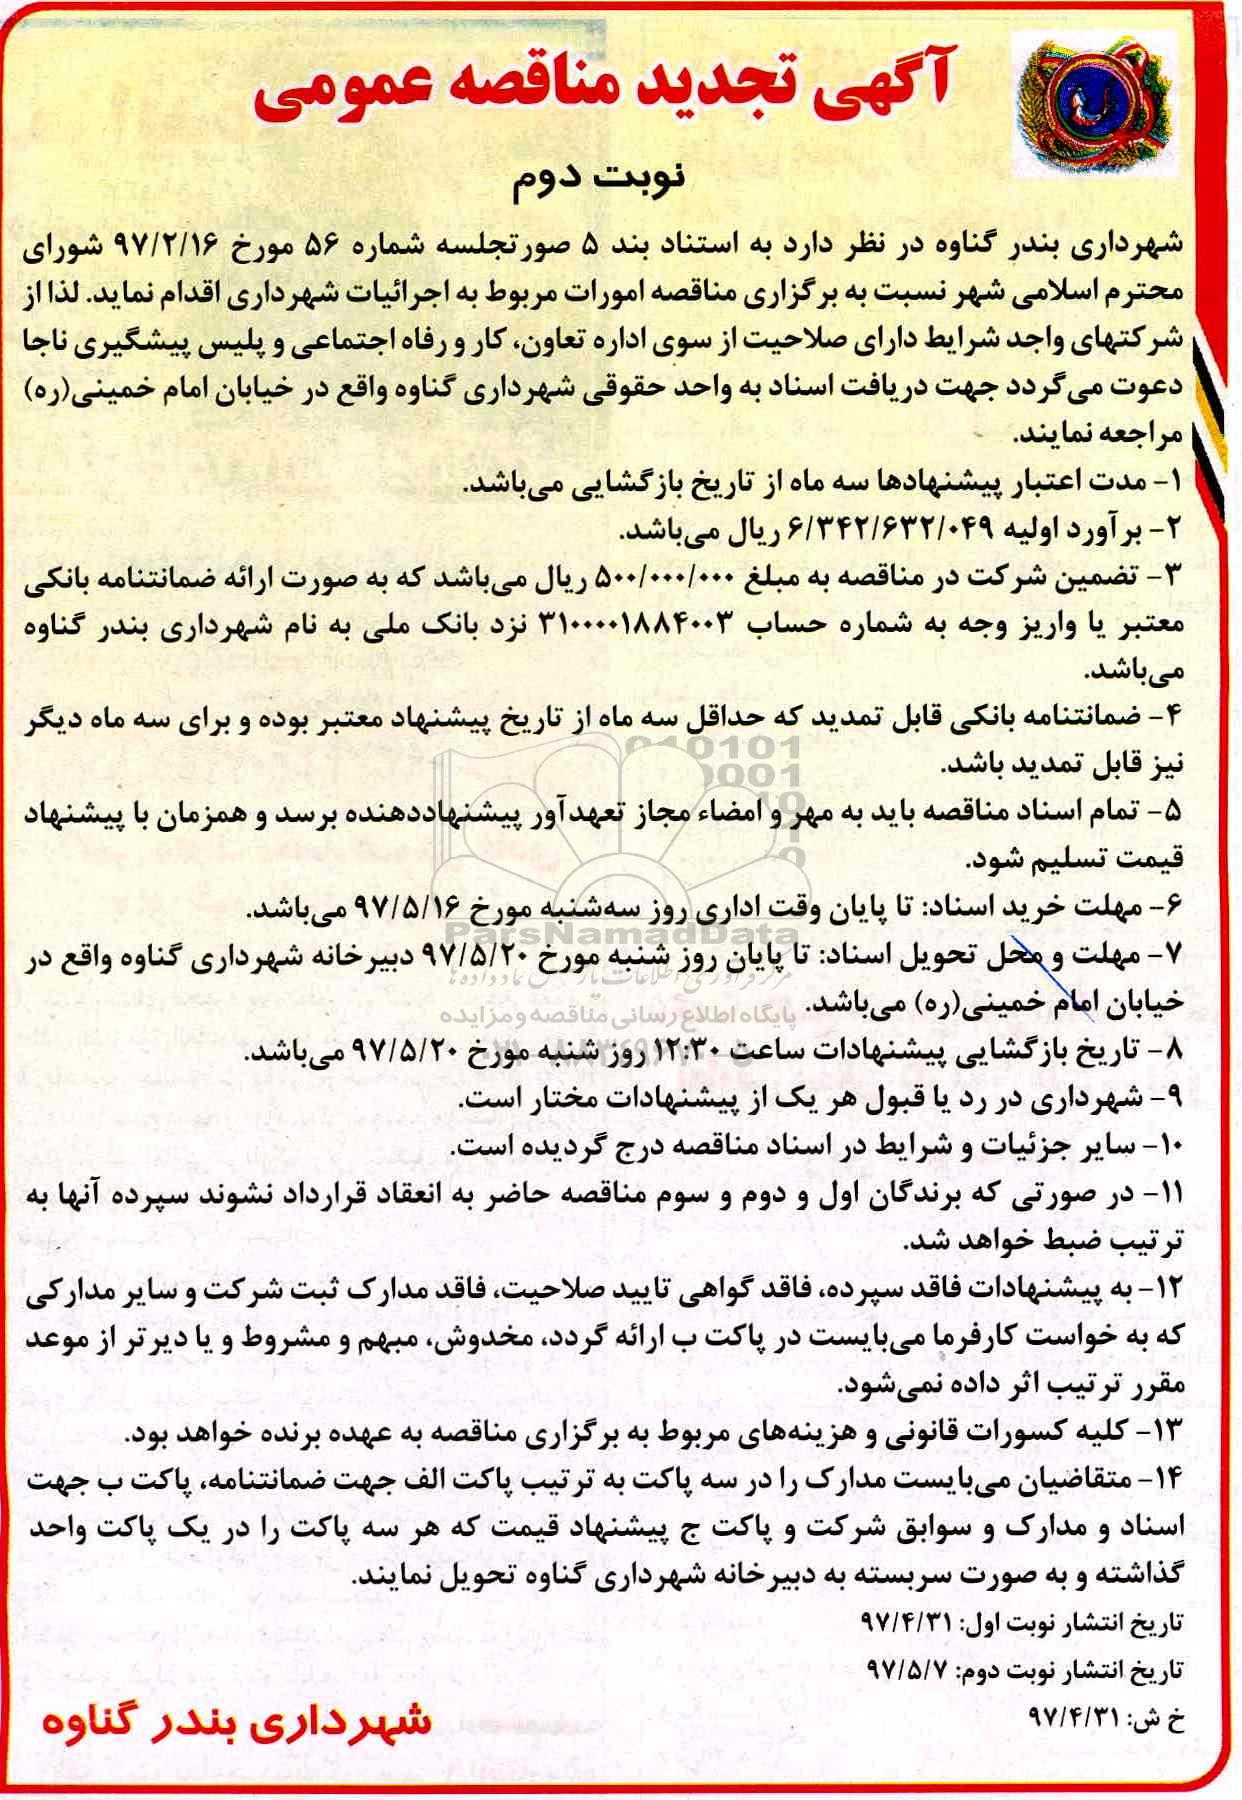 آگهی تجدید مناقصه عمومی
نوبت دوم
شهرداری بندر گناوه در نظر دارد به استناد بند ۵ صورتجلسه شماره ۵۶ مورخ ۹۷/۲/۱۶ شورای
محترم اسلامی شهر نسبت به برگزاری مناقصه امورات مربوط به اجرائیات شهرداری اقدام نماید. لذا از
شرکتهای واجد شرایط دارای صلاحیت از سوی اداره تعاون، کار و رفاه اجتماعی و پلیس پیشگیری ناجا
دعوت می‌گردد جهت دریافت اسناد به واحد حقوقی شهرداری گناوه واقع در خیابان امام خمینی(ره)
مراجعه نمایند.
۱- مدت اعتبار پیشنهادها سه ماه از تاریخ بازگشایی می‌باشد.
۲- برآورد اولیه ۶/۳۴۲/۶۳۲/۰۴۹ ریال می‌باشد.
۳- تضمین شرکت در مناقصه به مبلغ ۵۰۰/۰۰۰/۰۰۰ ریال می‌باشد که به صورت ارائه ضمانتنامه بانکی
معتبر یا واریز وجه به شماره حساب ۳۱۰۰۰۰۱۸۸۴۰۰۳ نزد بانک ملی به نام شهرداری بندر گناوه
می‌باشد.
۴- ضمانتنامه بانکی قابل تمدید که حداقل سه ماه از تاریخ پیشنهاد معتبر بوده و برای سه ماه دیگر
نیز قابل تمدید باشد.
۵- تمام اسناد مناقصه باید به مهر و امضاء مجاز تعهدآور پیشنهاددهنده برسد و همزمان با پیشنهاد
قیمت تسلیم شود.
۶- مهلت خرید اسناد: تا پایان وقت اداری روز سه‌شنبه مورخ ۹۷/۵/۱۶ می‌باشد.
ParsNamadData
۷- مهلت و محل تحویل اسناد: تا پایان روز شنبه مورخ ۹۷/۵/۲۰ دبیرخانه شهرداری گناوه واقع در
خیابان امام خمینی(ره) می‌باشد.
پایگاه اطلاع رسانی مناقصه و مزایده
۸- تاریخ بازگشایی پیشنهادات ساعت ۱۲:۳۰ روز شنبه مورخ ۹۷/۵/۲۰ می‌باشد.
۹- شهرداری در رد یا قبول هر یک از پیشنهادات مختار است.
۱۰- سایر جزئیات و شرایط در اسناد مناقصه درج گردیده است.
۱۱- در صورتی که برندگان اول و دوم و سوم مناقصه حاضر به انعقاد قرارداد نشوند سپرده آنها به
ترتیب ضبط خواهد شد.
۱۲- به پیشنهادات فاقد سپرده، فاقد گواهی تایید صلاحیت، فاقد مدارک ثبت شرکت و سایر مدارکی
که به خواست کارفرما می‌بایست در پاکت ب ارائه گردد، مخدوش، مبهم و مشروط و یا دیرتر از موعد
مقرر ترتیب اثر داده نمی‌شود.
۱۳- کلیه کسورات قانونی و هزینه‌های مربوط به برگزاری مناقصه به عهده برنده خواهد بود.
۱۴- متقاضیان می‌بایست مدارک را در سه پاکت به ترتیب پاکت الف جهت ضمانتنامه، پاکت ب جهت
اسناد و مدارک و سوابق شرکت و پاکت ج پیشنهاد قیمت که هر سه پاکت را در یک پاکت واحد
گذاشته و به صورت سربسته به دبیرخانه شهرداری گناوه تحویل نمایند.
تاریخ انتشار نوبت اول: ۹۷/۴/۳۱
تاریخ انتشار نوبت دوم: ۹۷/۵/۷
خ ش: ۹۷/۴/۳۱
شهرداری بندر گناوه